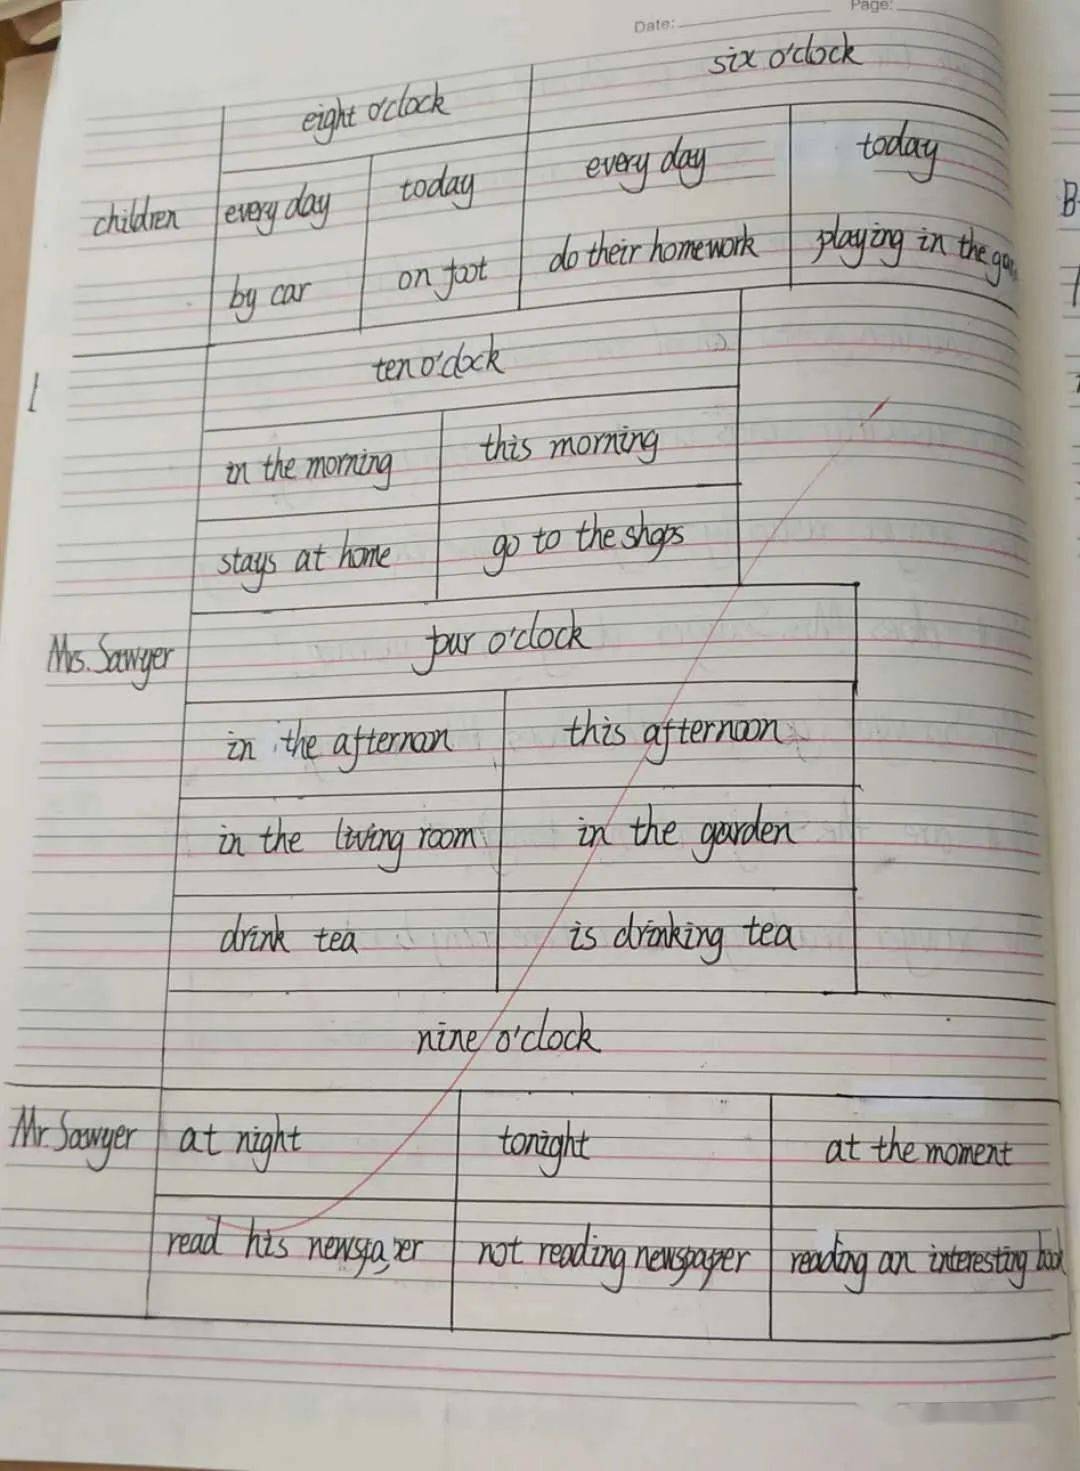 Date:
Page:
six o'clock
eight o'clock
every day
today
children
every day
today
do their homework
playing in the
by car
on foot
ten o'clock
1
in the morning
this morning
stays at home
go to the shops
Mrs. Sawyer
four o'clock
in the afternoon
this afternoon
in the living room
in the garden
drink tea
is drinking tea
nine o'clock
Mr. Sawyer
at night
tonight
at the moment
read his newspaper
not reading newspaper
reading an interesting book